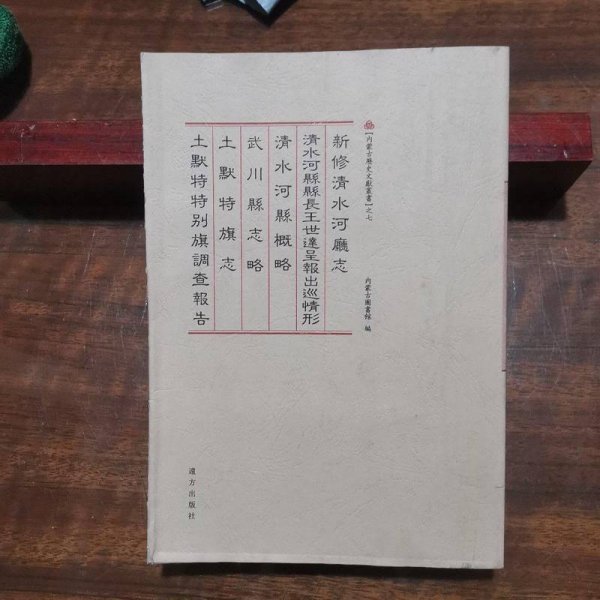 【内蒙古歷史文獻叢書】之七
内蒙古圖書館 編
新修清水河廳志
清水河縣縣長王世達呈報出巡情形
清水河縣概略
武川縣志略
土默特旗志
土默特特別旗調查報告
遠方出版社